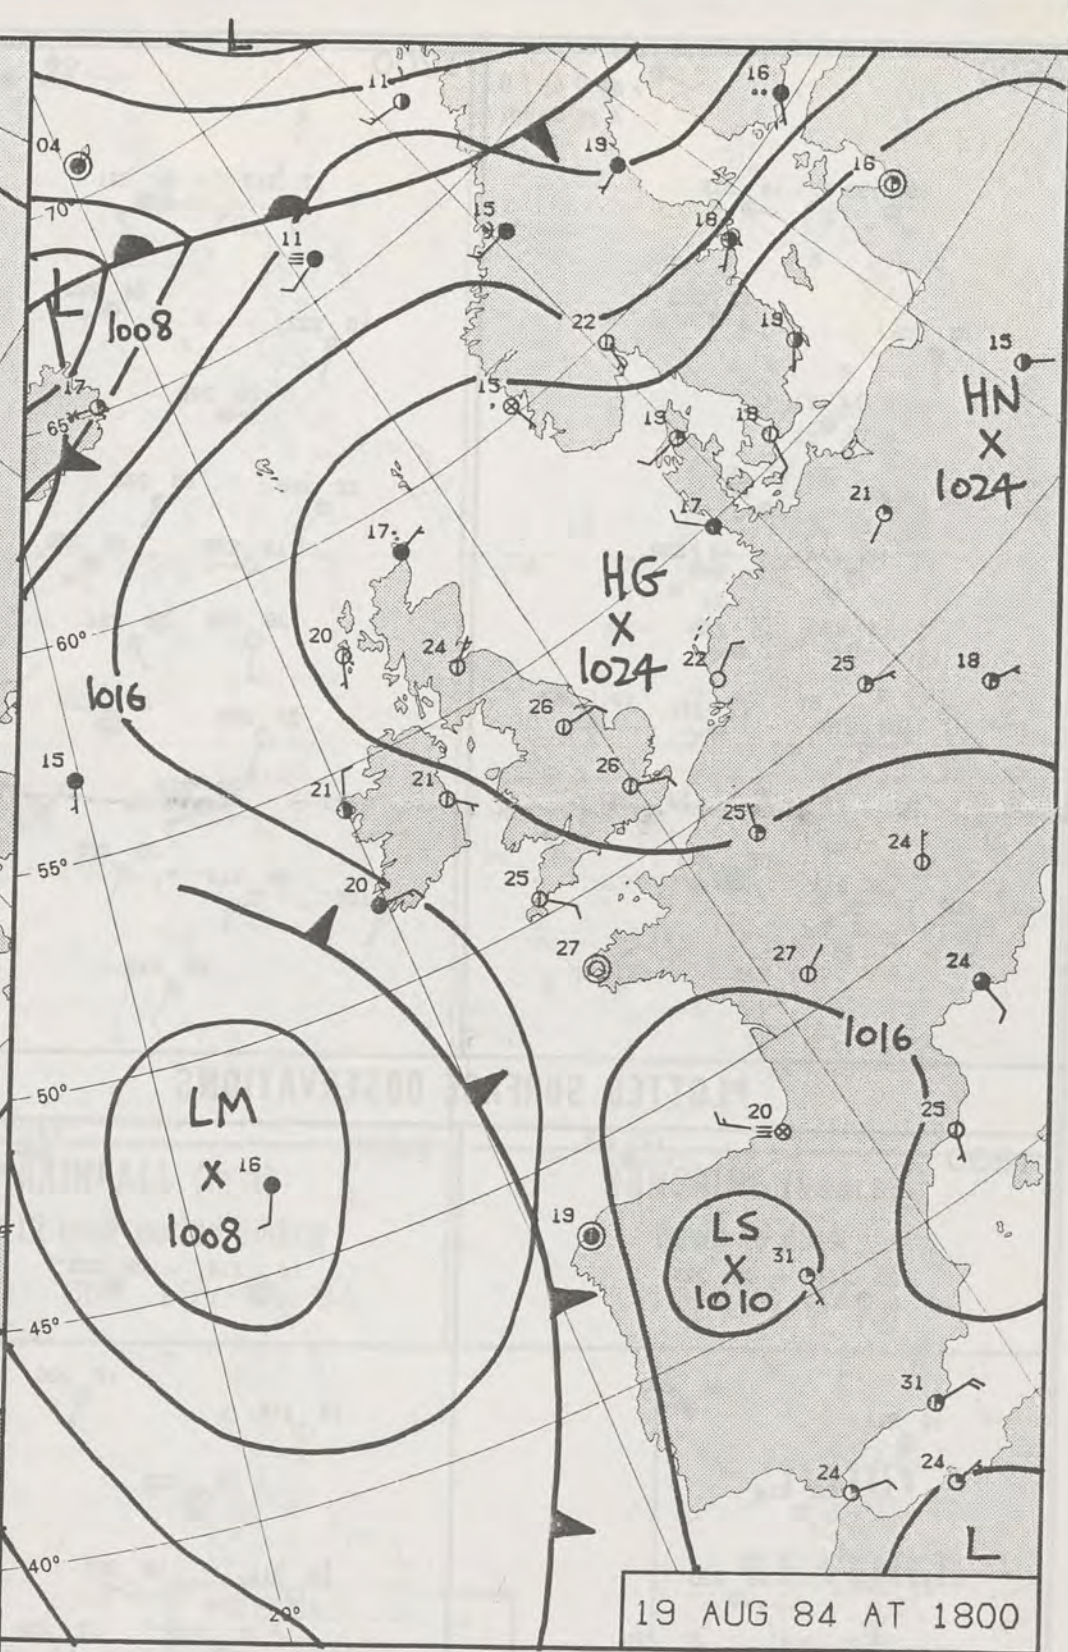 L
11
16
04
19
16
70°
15
18
11
L
1008
22
19
15
HN
X
1024
17
15
65°
19
18
21
17
17
HG
X
1024
60°
20
24
22
25
18
1016
26
15
21
21
26
25
24
55°
20
25
27
27
24
1016
50°
LM
X 16
1008
20
25
19
LS
X
1010
31
45°
31
24
24
L
40°
20°
19 AUG 84 AT 1800